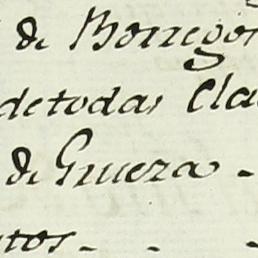 de Borregos
de todas Cla
de Grueza -
tos - - -